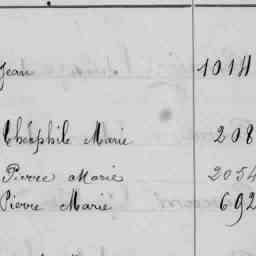 Jean 1014
Théophile Marie 208
Pierre Marie 2054
Pierre Marie 692